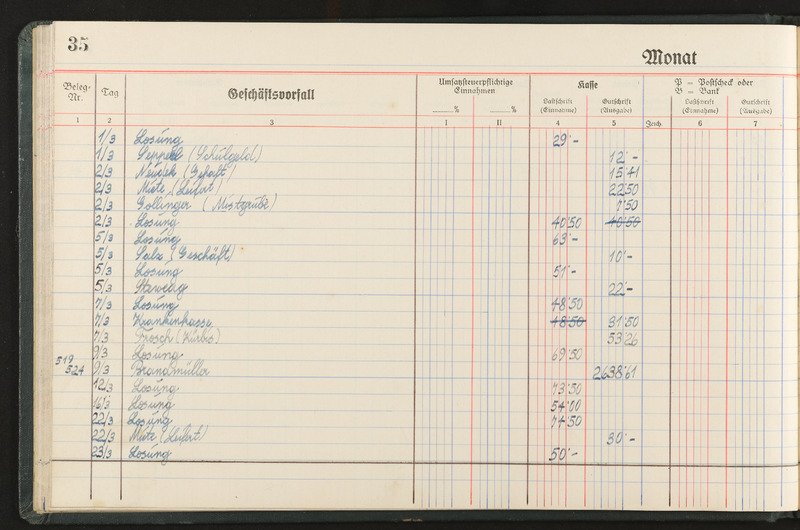 35
Monat
Beleg-Nr. Tag Geschäftsvorfall Umsatzsteuerpflichtige Einnahmen Kasse P = Postscheck oder B = Bank
% % Lastschrift (Einnahme) Gutschrift (Ausgabe) Zeich. Lastschrift (Einnahme) Gutschrift (Ausgabe)
1 2 3 I II 4 5 6 7
1/3 Losung 29·-
1/3 (Schulgeld) 12·-
2/3 15·41
2/3 Miete 22·50
2/3 Gollinger (Mistgrube) 7·50
2/3 Losung 40·50 40·50
5/3 Losung 63·-
5/3 Salz (Geschäft) 10·-
5/3 Losung 51·-
5/3 22·-
7/3 Losung 48·50
7/3 Krankenkasse 48·50 31·50
7/3 Frosch (Kürbis) 53·26
9/3 Losung 69·50
519 524 9/3 Brandmüller 2638·61
12/3 Losung 73·50
16/3 Losung 54·00
22/3 Losung 74·50
22/3 30·-
23/3 Losung 50·-